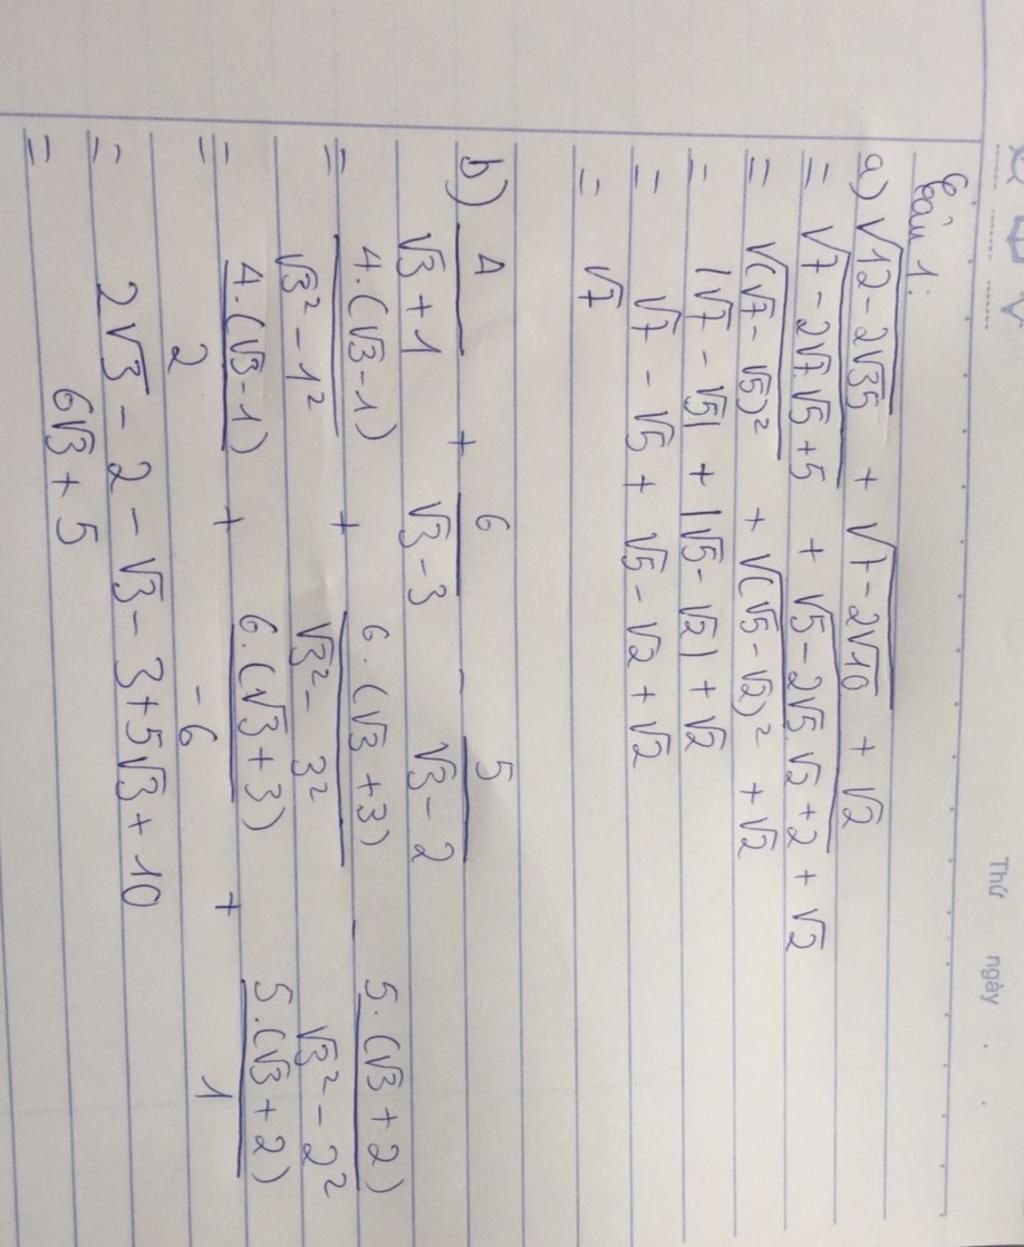 Thứ ngày
Câu 1:
a) √(12 - 2√35) + √(7 - 2√10) + √2
= √(7 - 2√7.√5 + 5) + √(5 - 2√5.√2 + 2) + √2
= √((√7 - √5)²) + √((√5 - √2)²) + √2
= |√7 - √5| + |√5 - √2| + √2
= √7 - √5 + √5 - √2 + √2
= √7
b) 4/(√3 + 1) + 6/(√3 - 3) - 5/(√3 - 2)
= 4.(√3 - 1)/(√3² - 1²) + 6.(√3 + 3)/(√3² - 3²) - 5.(√3 + 2)/(√3² - 2²)
= 4.(√3 - 1)/2 + 6.(√3 + 3)/-6 + 5.(√3 + 2)/1
= 2√3 - 2 - √3 - 3 + 5√3 + 10
= 6√3 + 5